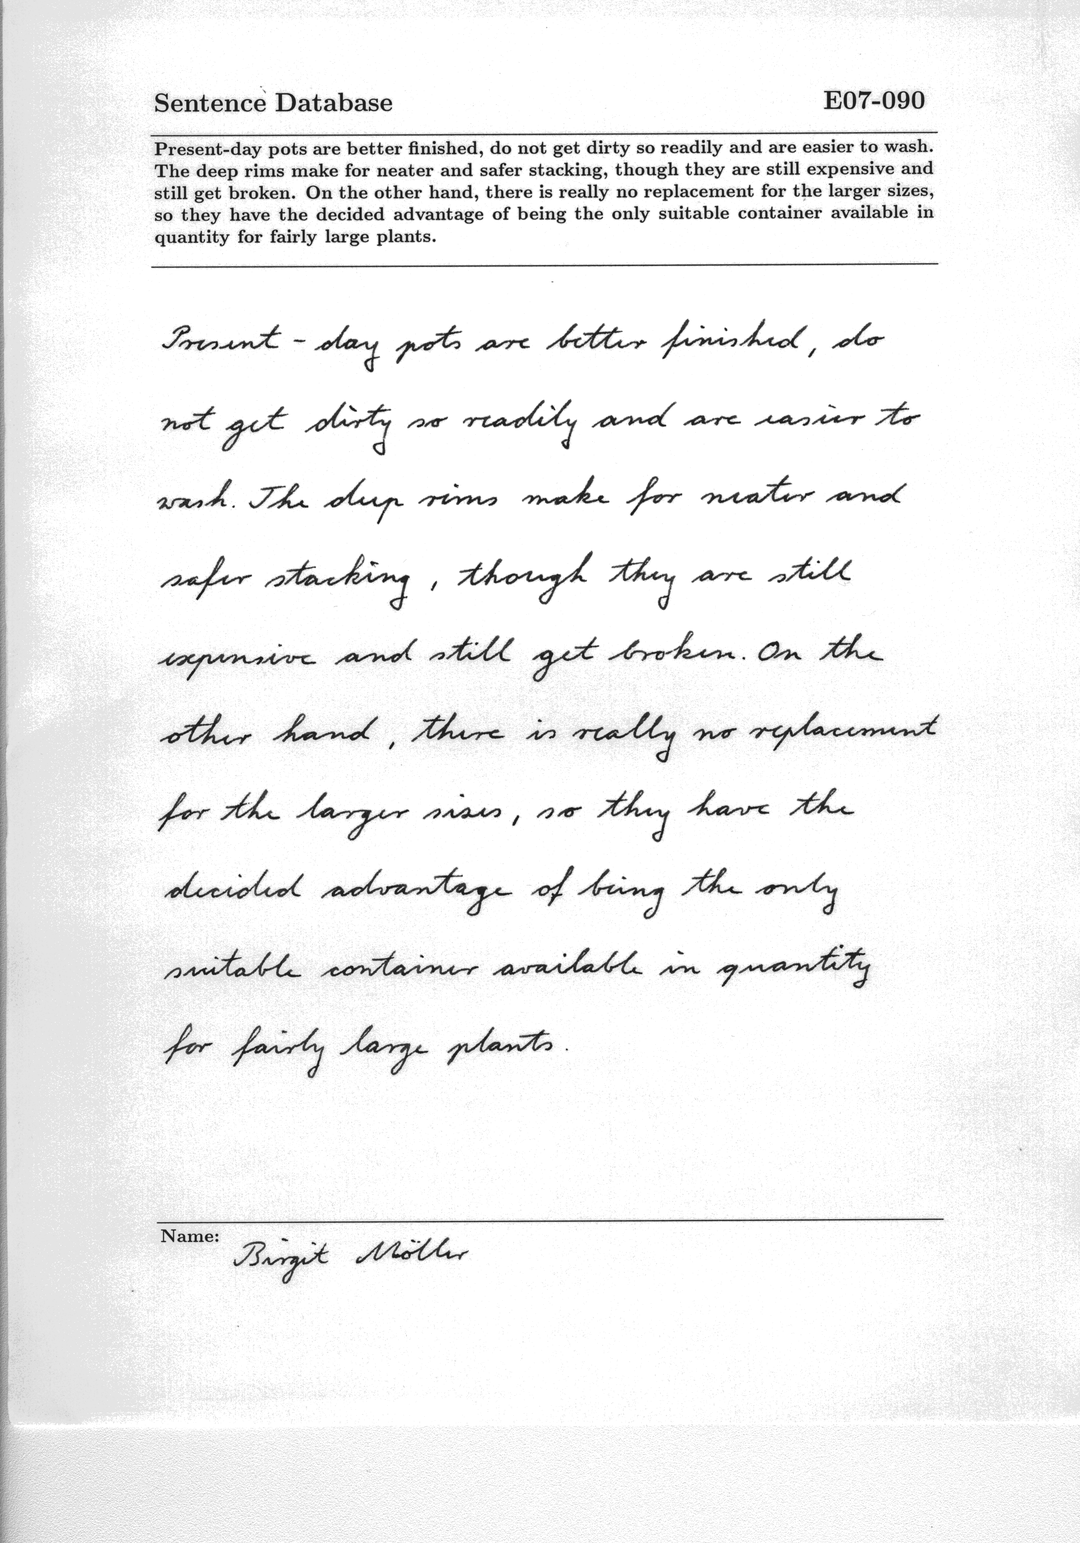 Sentence Database E07-090
Present-day pots are better finished, do not get dirty so readily and are easier to wash.
The deep rims make for neater and safer stacking, though they are still expensive and
still get broken. On the other hand, there is really no replacement for the larger sizes,
so they have the decided advantage of being the only suitable container available in
quantity for fairly large plants.
Present - day pots are better finished, do
not get dirty so readily and are easier to
wash. The deep rims make for neater and
safer stacking, though they are still
expensive and still get broken. On the
other hand, there is really no replacement
for the larger sises, so they have the
decided advantage of being the only
suitable container available in quantity
for fairly large plants.
Name: Birgit Möller